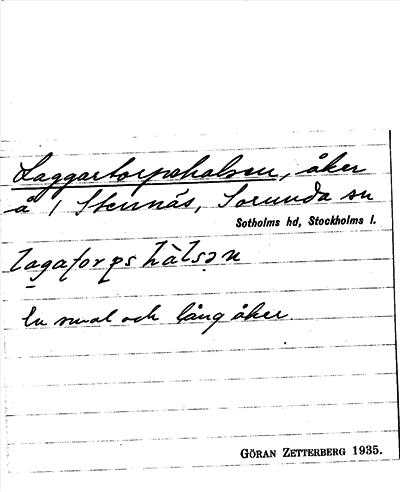 Laggartorpshalsen, åker
å 1 Stennäs, Sorunda sn
Sotholms hd, Stockholms l.
lagatorps hàlsən
En smal och lång åker
GÖRAN ZETTERBERG 1935.